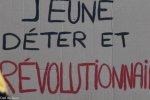 JEUNE
DÉTER ET
RÉVOLUTIONNAI